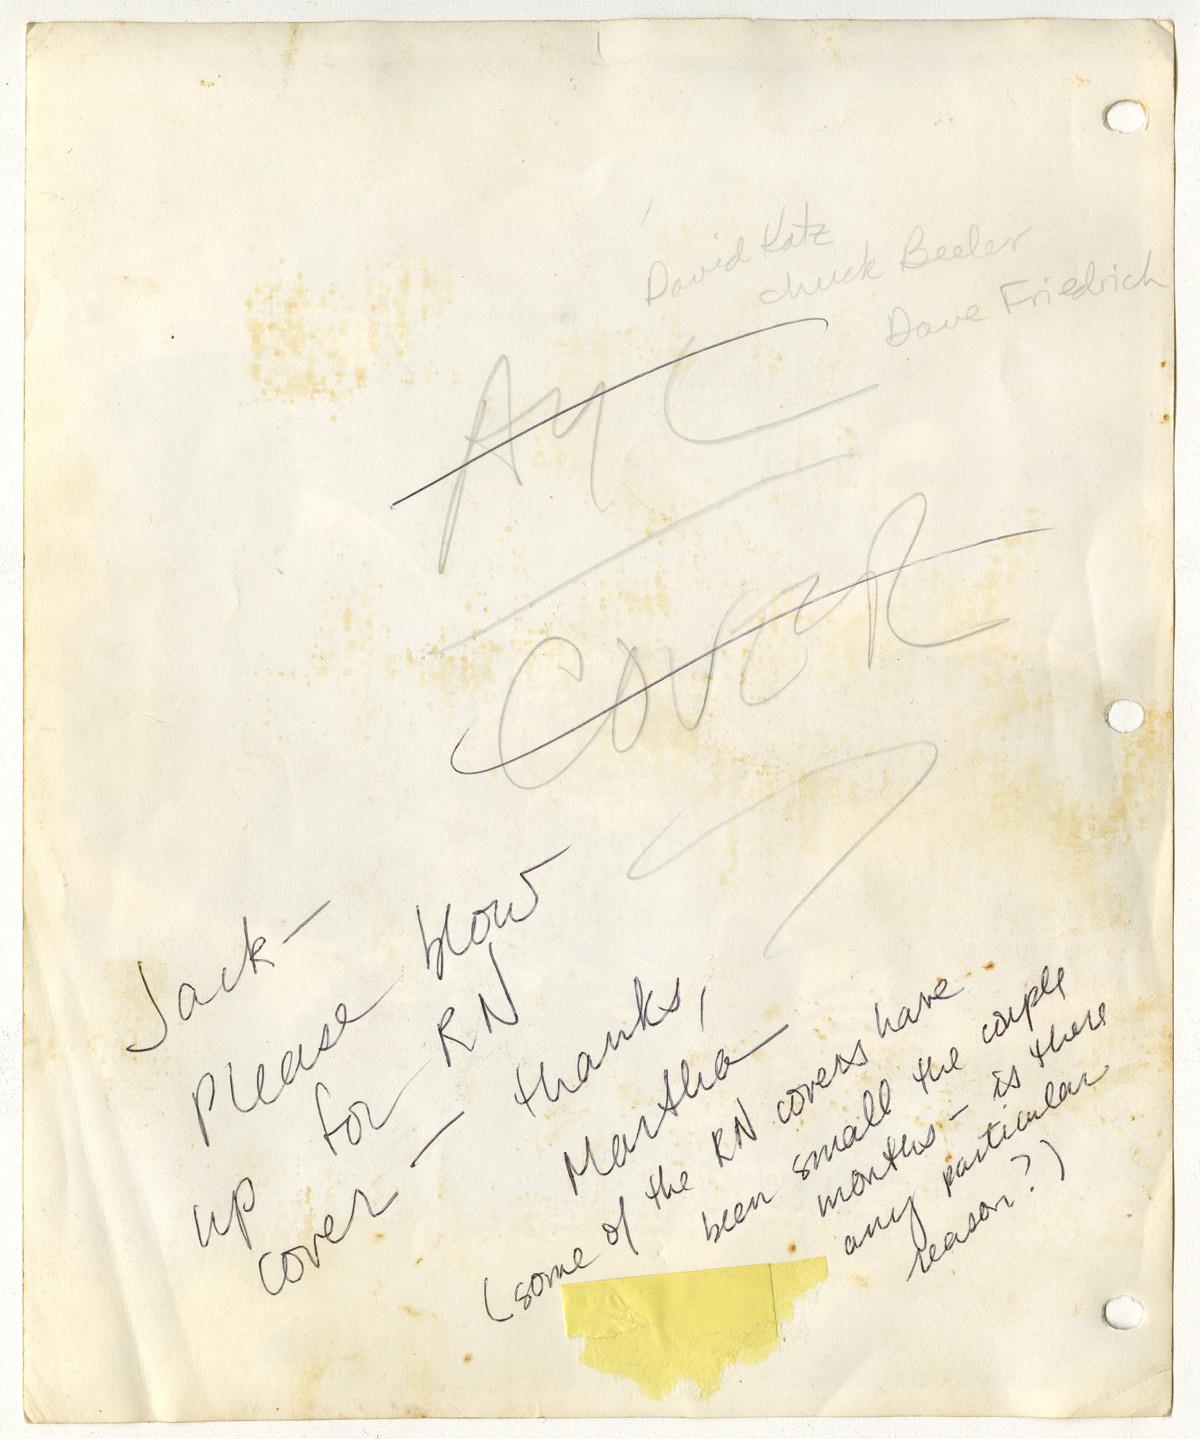 David Katz
Chuck Beeler
Dave Friedrich
AYC
COVER
Jack—
Please blow
up for RN
cover — thanks,
Martha
(some of the RN covers have
been small the couple
months — is there
any particular
reason?)